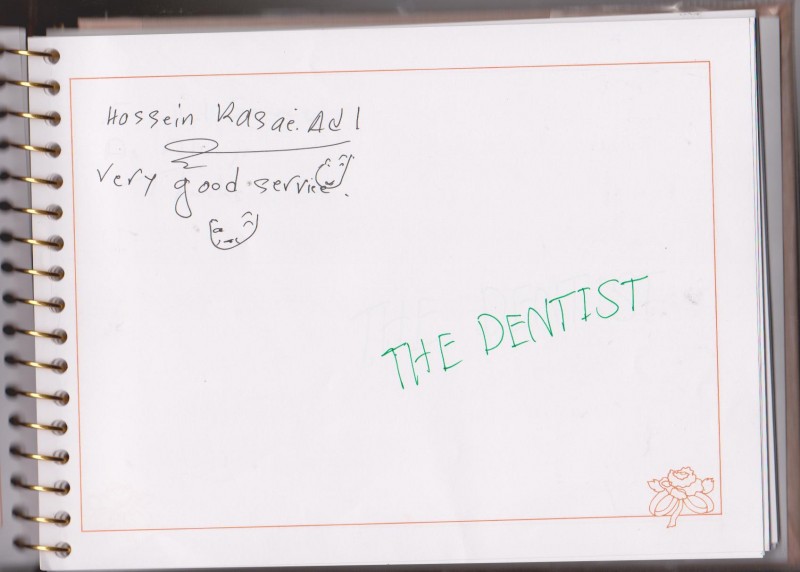 Hossein Rasaei. Ad l
Very good service.
THE DENTIST